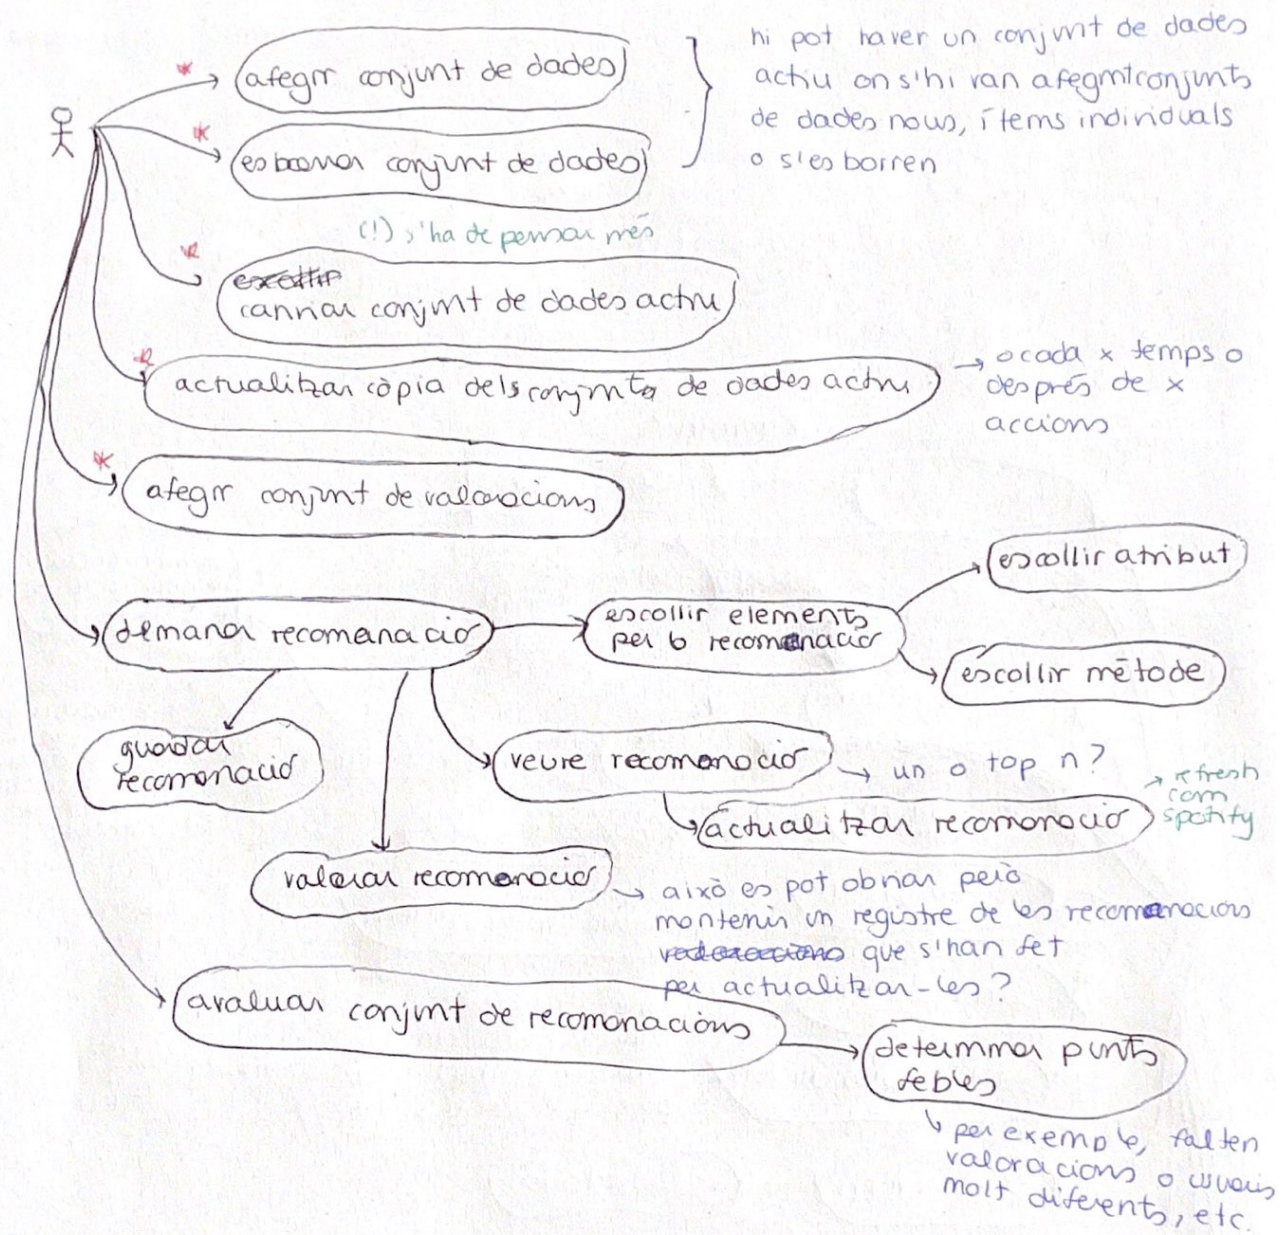 afegir conjunt de dades
hi pot haver un conjunt de dades
actiu on s'hi van afegint conjunts
de dades nous, ítems individuals
o s'esborren
esborrar conjunt de dades
(!) s'ha de pensar més
escollir
canviar conjunt de dades actiu
actualitzar còpia dels conjunts de dades actiu
→ o cada x temps o
després de x
accions
afegir conjunt de valoracions
demanar recomanació
escollir elements
per la recomanació
escollir atribut
escollir mètode
guardar
recomanació
veure recomanació
→ un o top n?
actualitzar recomanació
→ refresh
com
spotify
valorar recomanació
→ això es pot obviar però
mantenir un registre de les recomanacions
que s'han fet
per actualitzar-les?
avaluar conjunt de recomanacions
determinar punts
febles
per exemple, falten
valoracions o usuaris
molt diferents, etc.